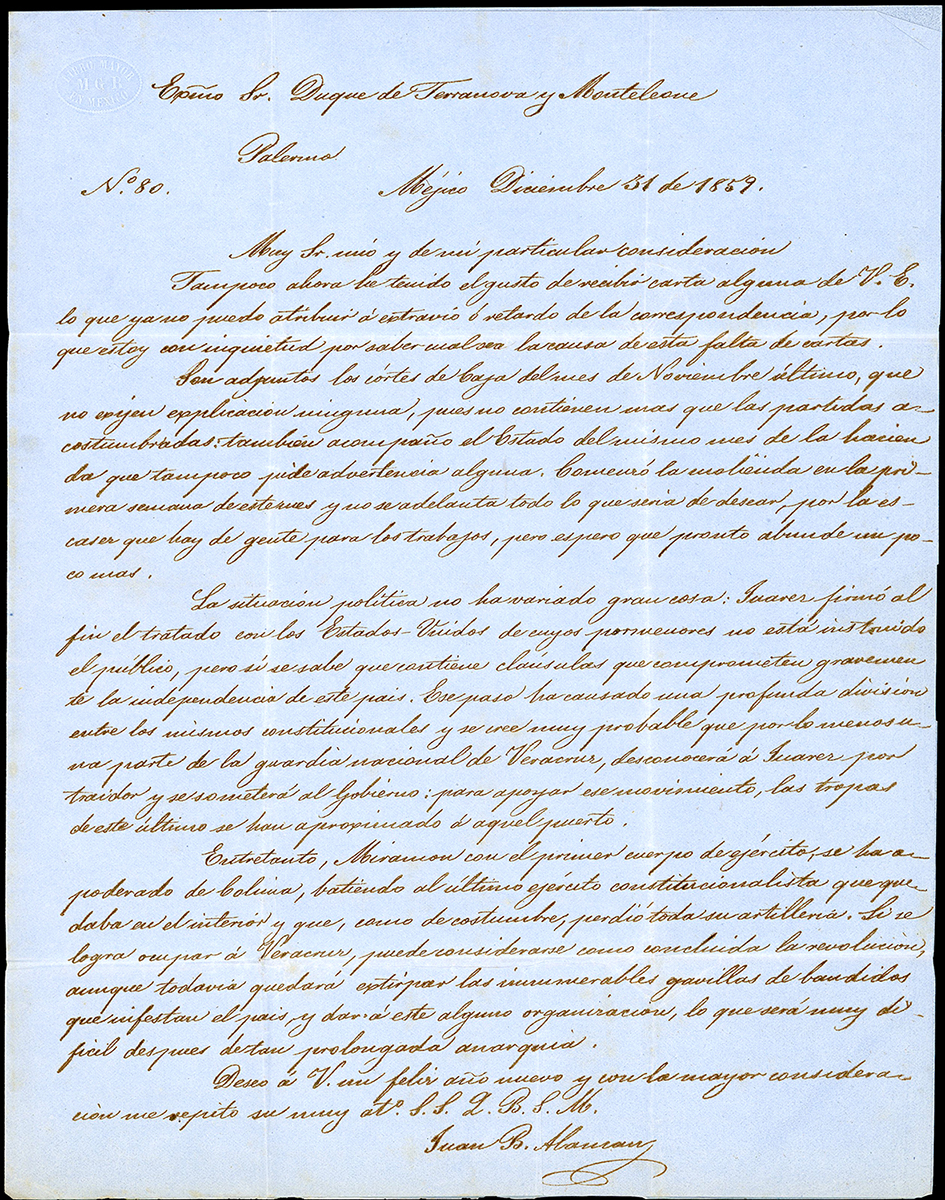 Exmo Sr. Duque de Terranova y Monteleone
Palermo
N.º 80.
Méjico Diciembre 31 de 1859.
Muy Sr. mio y de mi particular consideracion
Tampoco ahora he tenido el gusto de recibir carta alguna de V. E.
lo que ya no puedo atribuir á extravio ó retardo de la correspondencia, por lo
que estoy con inquietud por saber cual sea la causa de esta falta de cartas.
Son adjuntos los córtes de Caja del mes de Noviembre último, que
no exijen explicacion ninguna, pues no contienen mas que las partidas a-
costumbradas: tambien acompaño el Estado del mismo mes de la hacien
da que tampoco pide advertencia alguna. Comenzó la molienda en la pri-
mera semana de este mes y no se adelanta todo lo que seria de desear, por la es-
casez que hay de gente para los trabajos, pero espero que pronto abunde un po-
co mas.
La situacion política no ha variado gran cosa: Juarez firmó al
fin el tratado con los Estados-Unidos de cuyos pormenores no está instruido
el público, pero sí se sabe que contiene claúsulas que comprometen gravemen
te la independencia de este pais. Ese paso ha causado una profunda division
entre los mismos constitucionales y se cree muy probable que por lo menos u-
na parte de la guardia nacional de Veracruz, desconocerá á Juarez por
traidor y se someterá al Gobierno: para apoyar ese movimiento, las tropas
de este último se han aproximado á aquel puerto.
Entretanto, Miramon con el primer cuerpo de ejército, se ha a-
poderado de Colima, batiendo al último ejército constitucionalista que que-
daba en el interior y que, como de costumbre, perdió toda su artilleria. Si se
logra ocupar á Veracruz, puede considerarse como concluida la revolucion,
aunque todavia quedará extirpar las innumerables gavillas de bandidos
que infestan el pais, y dar á este alguno organizacion, lo que será muy di-
ficil despues de tan prolongada anarquia.
Deseo á V. un feliz año nuevo y con la mayor considera-
cion me repito su muy at.º S. S. Q. B. S. M.
Juan B. Alaman